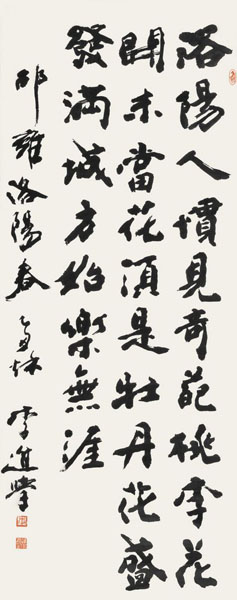 洛陽人慣見奇葩桃李花
開未當花須是牡丹花盛
發滿城方始樂無涯
邵雍洛陽春 秋 李進學